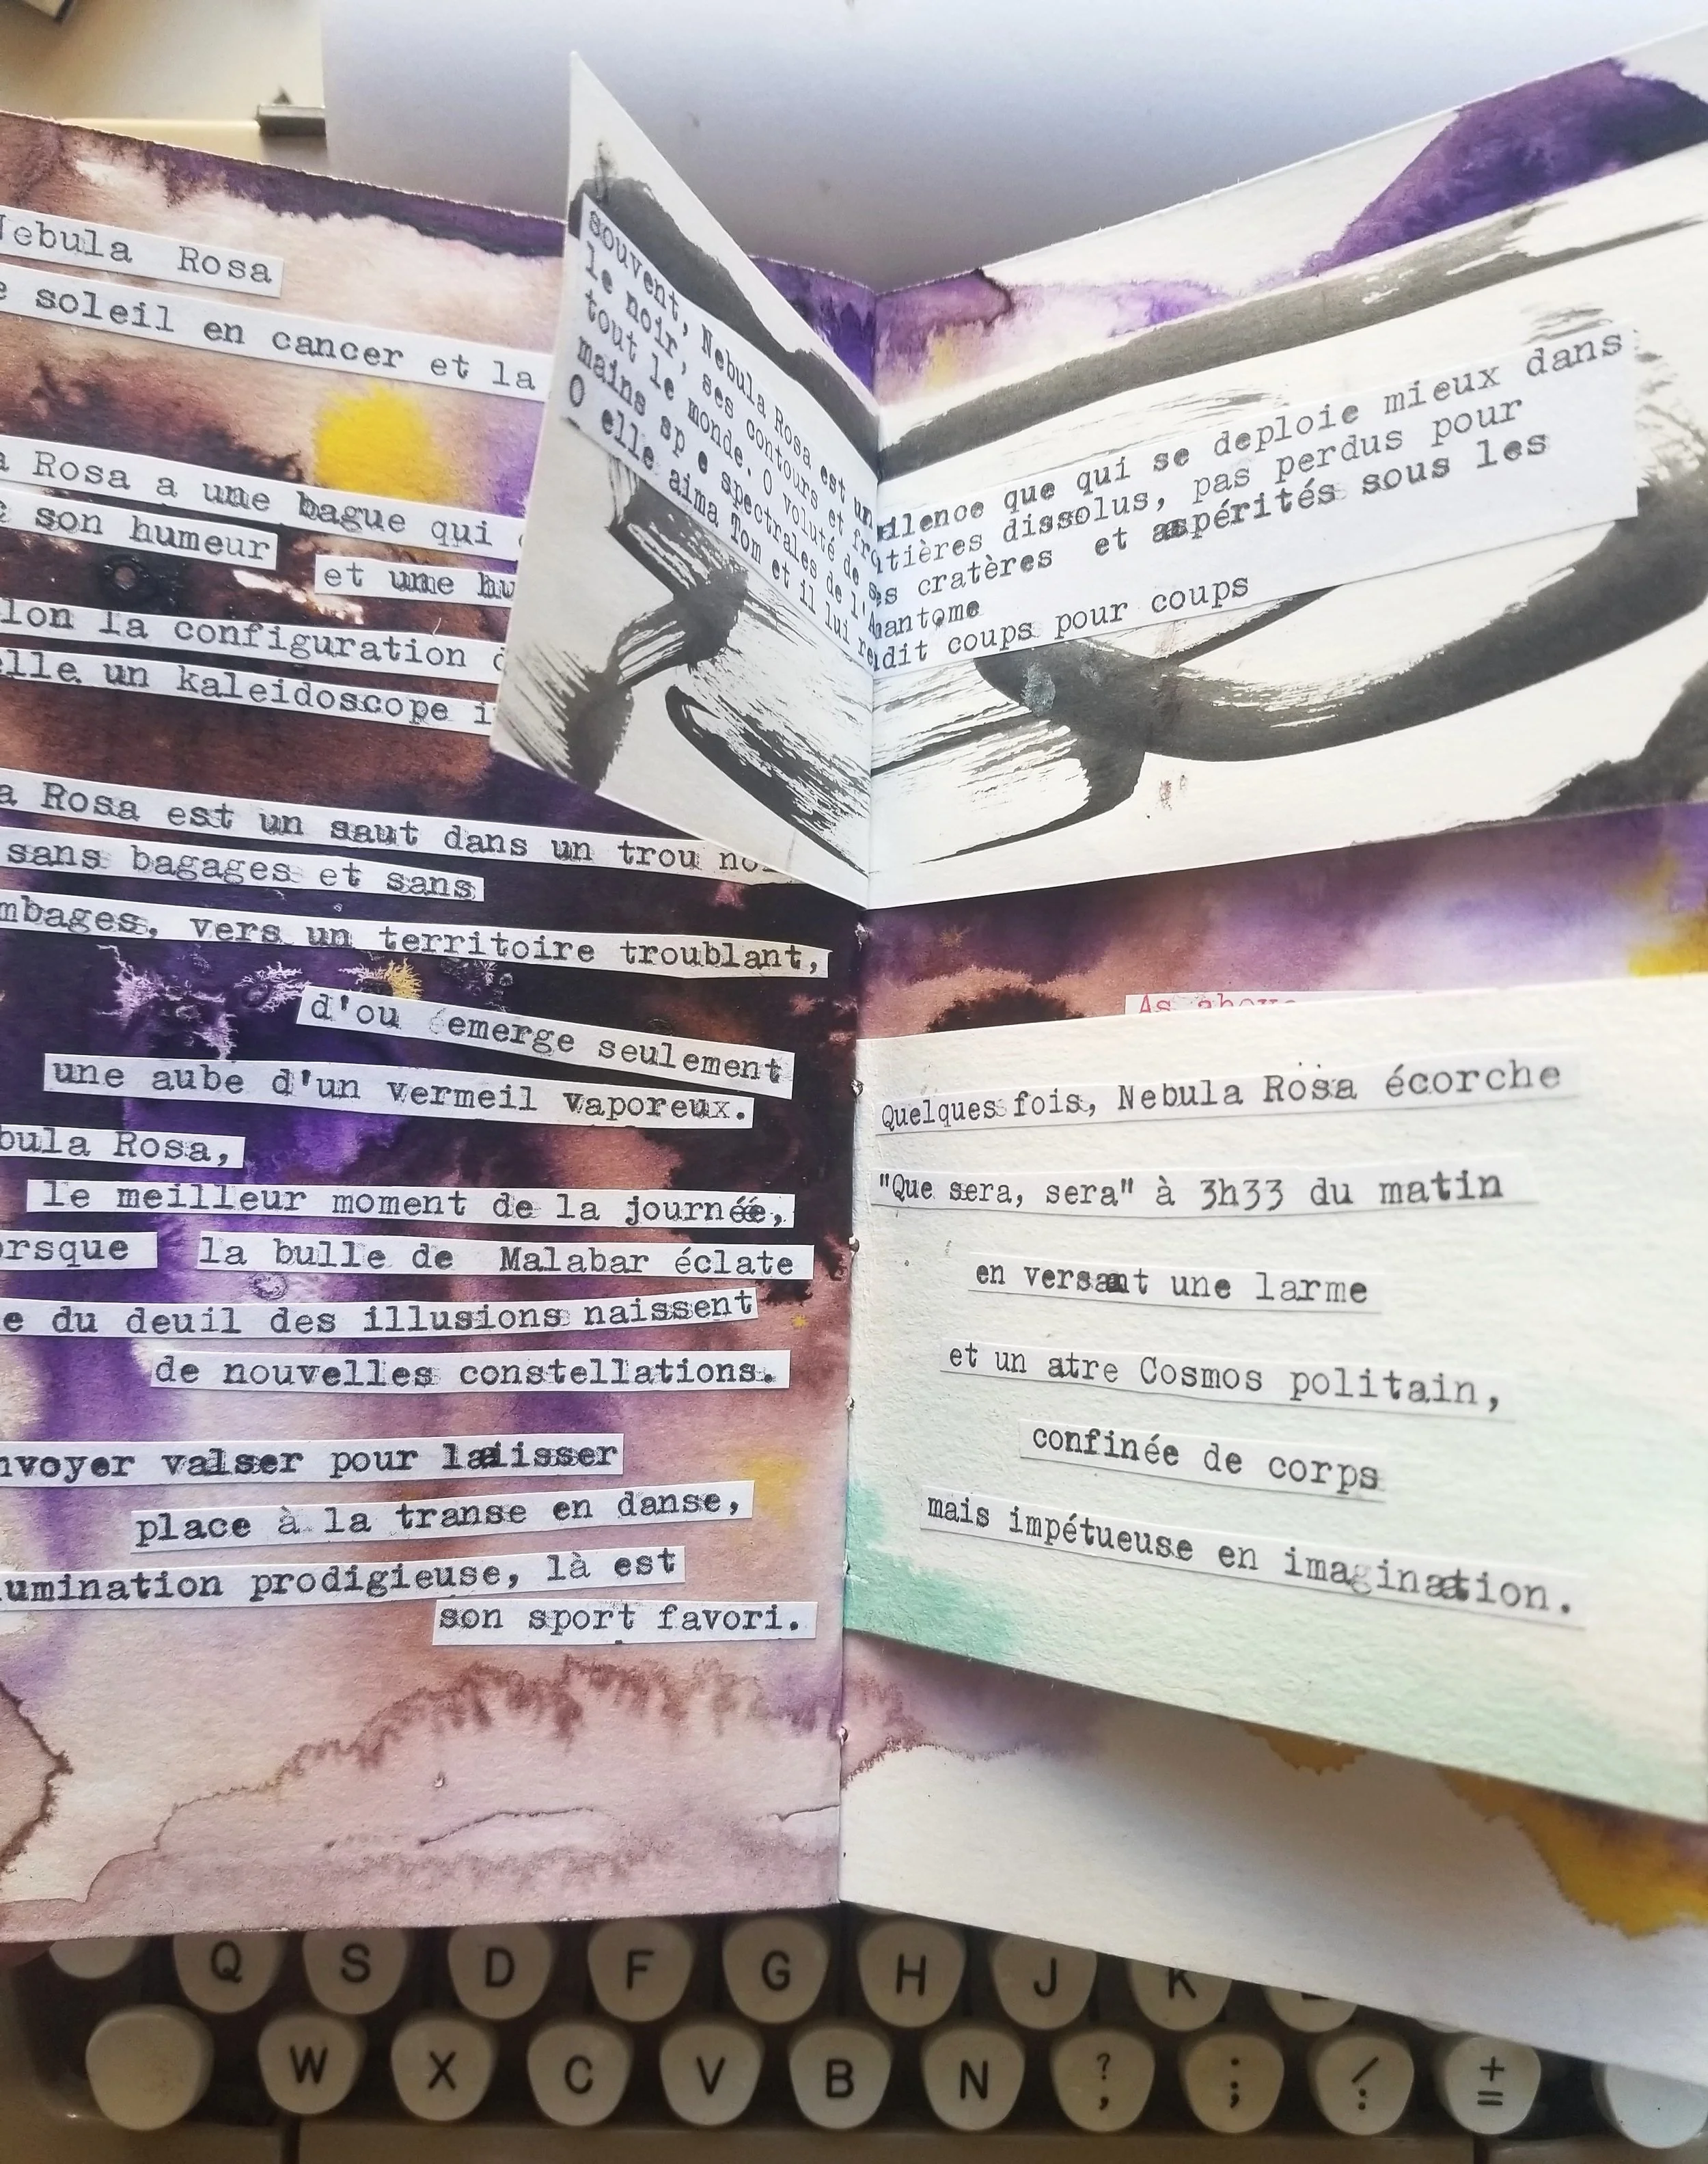 Nebula Rosa
soleil en cancer et la
Rosa a une bague qui
son humeur et une
la configuration
un kaleidoscope
Rosa est un saut dans un trou
sans bagages et sans
vers un territoire troublant,
d'ou emerge seulement
une aube d'un vermeil vaporeux.
Rosa,
le meilleur moment de la journée,
la bulle de Malabar éclate
du deuil des illusions naissent
de nouvelles constellations.
valser pour laisser
place à la transe en danse,
prodigieuse, là est
son sport favori.
souvent, Nebula Rosa est un silence que qui se deploie mieux dans
le noir, ses contours et frontières dissolus, pas perdus pour
tout le monde. O voluté de ses cratères et aspérités sous les
mains sp e spectrales de l'Amantome
O elle aima Tom et il lui rendit coups pour coups
As above
Quelques fois, Nebula Rosa écorche
"Que sera, sera" à 3h33 du matin
en versant une larme
et un atre Cosmos politain,
confinée de corps
mais impétueuse en imagination.
Q S D F G H J K
W X C V B N ? , : ; / : + =